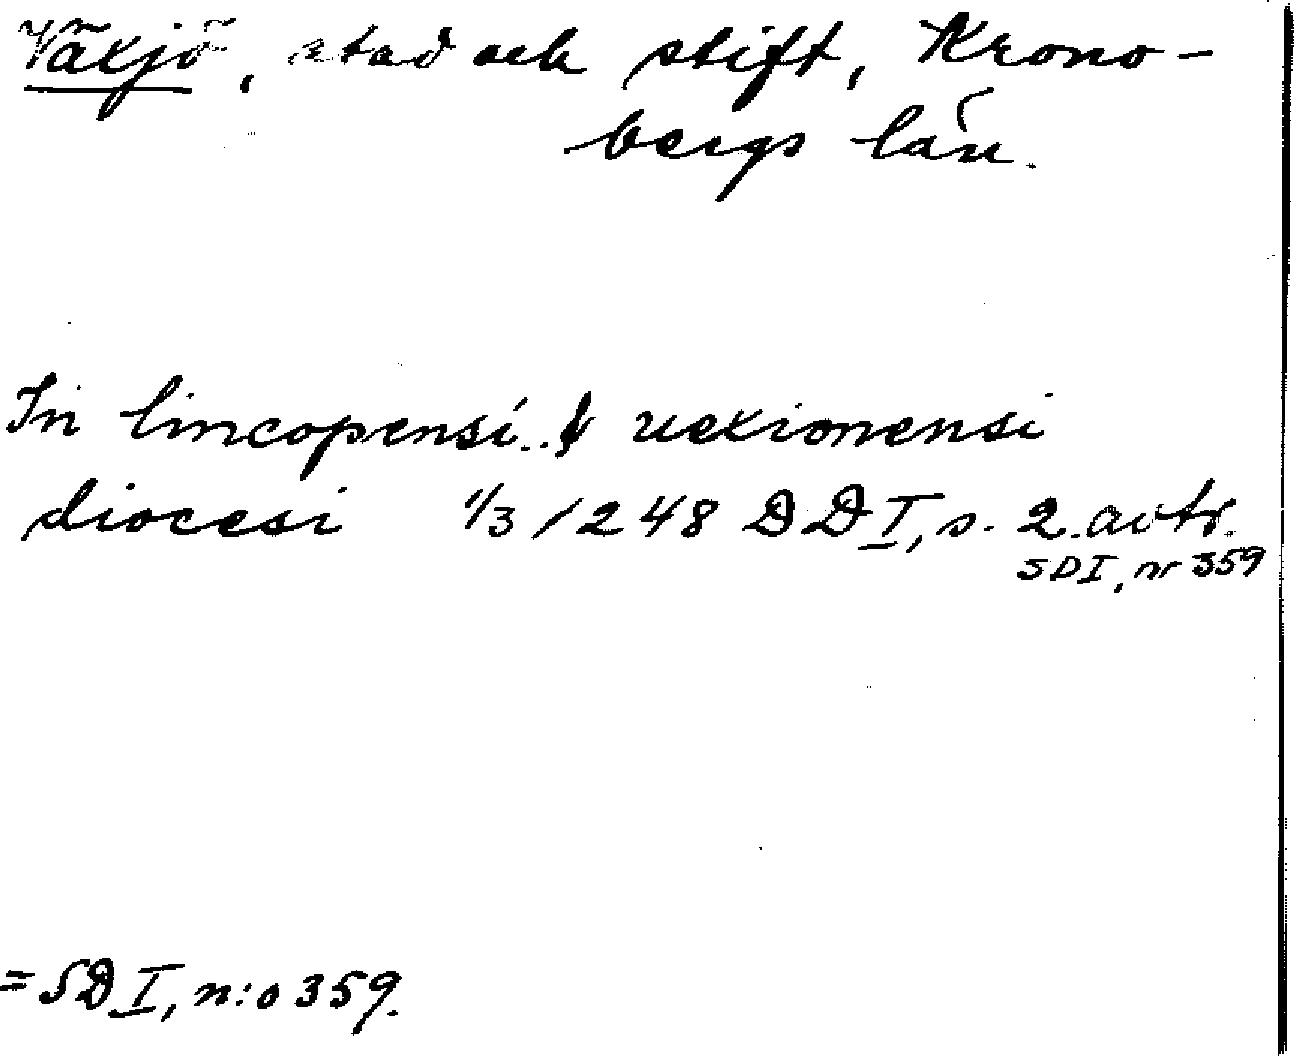 Växjö, stad och stift, Krono-
bergs län.
In lincopensi .. & uexionensi
diocesi 1/3 1248 DD I, s. 2. avtr.
SD I, nr 359
= SD I, n:o 359.